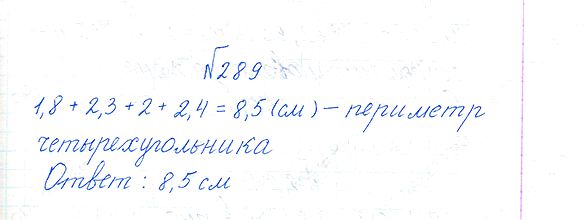 №289
1,8 + 2,3 + 2 + 2,4 = 8,5 (см) – периметр
четырехугольника
Ответ : 8,5 см